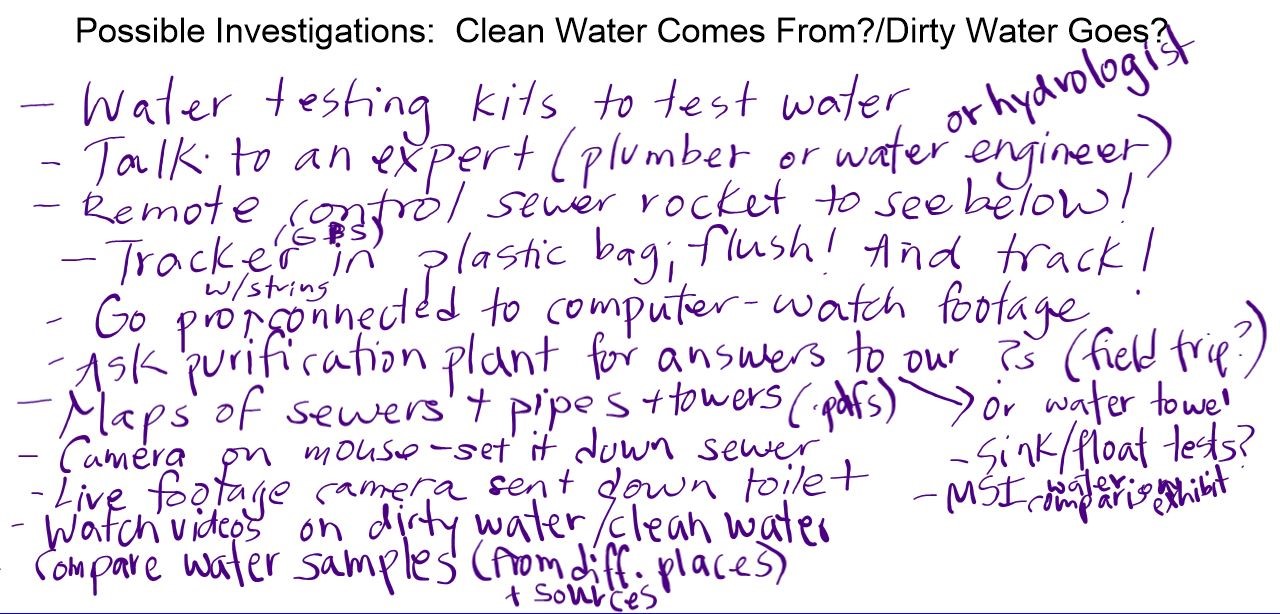 Possible Investigations: Clean Water Comes From?/Dirty Water Goes?
- Water testing kits to test water
or hydrologist
- Talk to an expert (plumber or water engineer)
- Remote control sewer rocket to see below!
(GPS)
- Tracker in plastic bag; flush! And track!
w/string
- Go pro connected to computer - watch footage
- Ask purification plant for answers to our ?s (field trip?)
- Maps of sewers + pipes + towers (.pdfs) → or water tower
- Camera on mouse - set it down sewer
- Sink/float tests?
- Live footage camera sent down toilet
- MSI water comparison exhibit
- Watch videos on dirty water/clean water
- Compare water samples (from diff. places)
+ sources